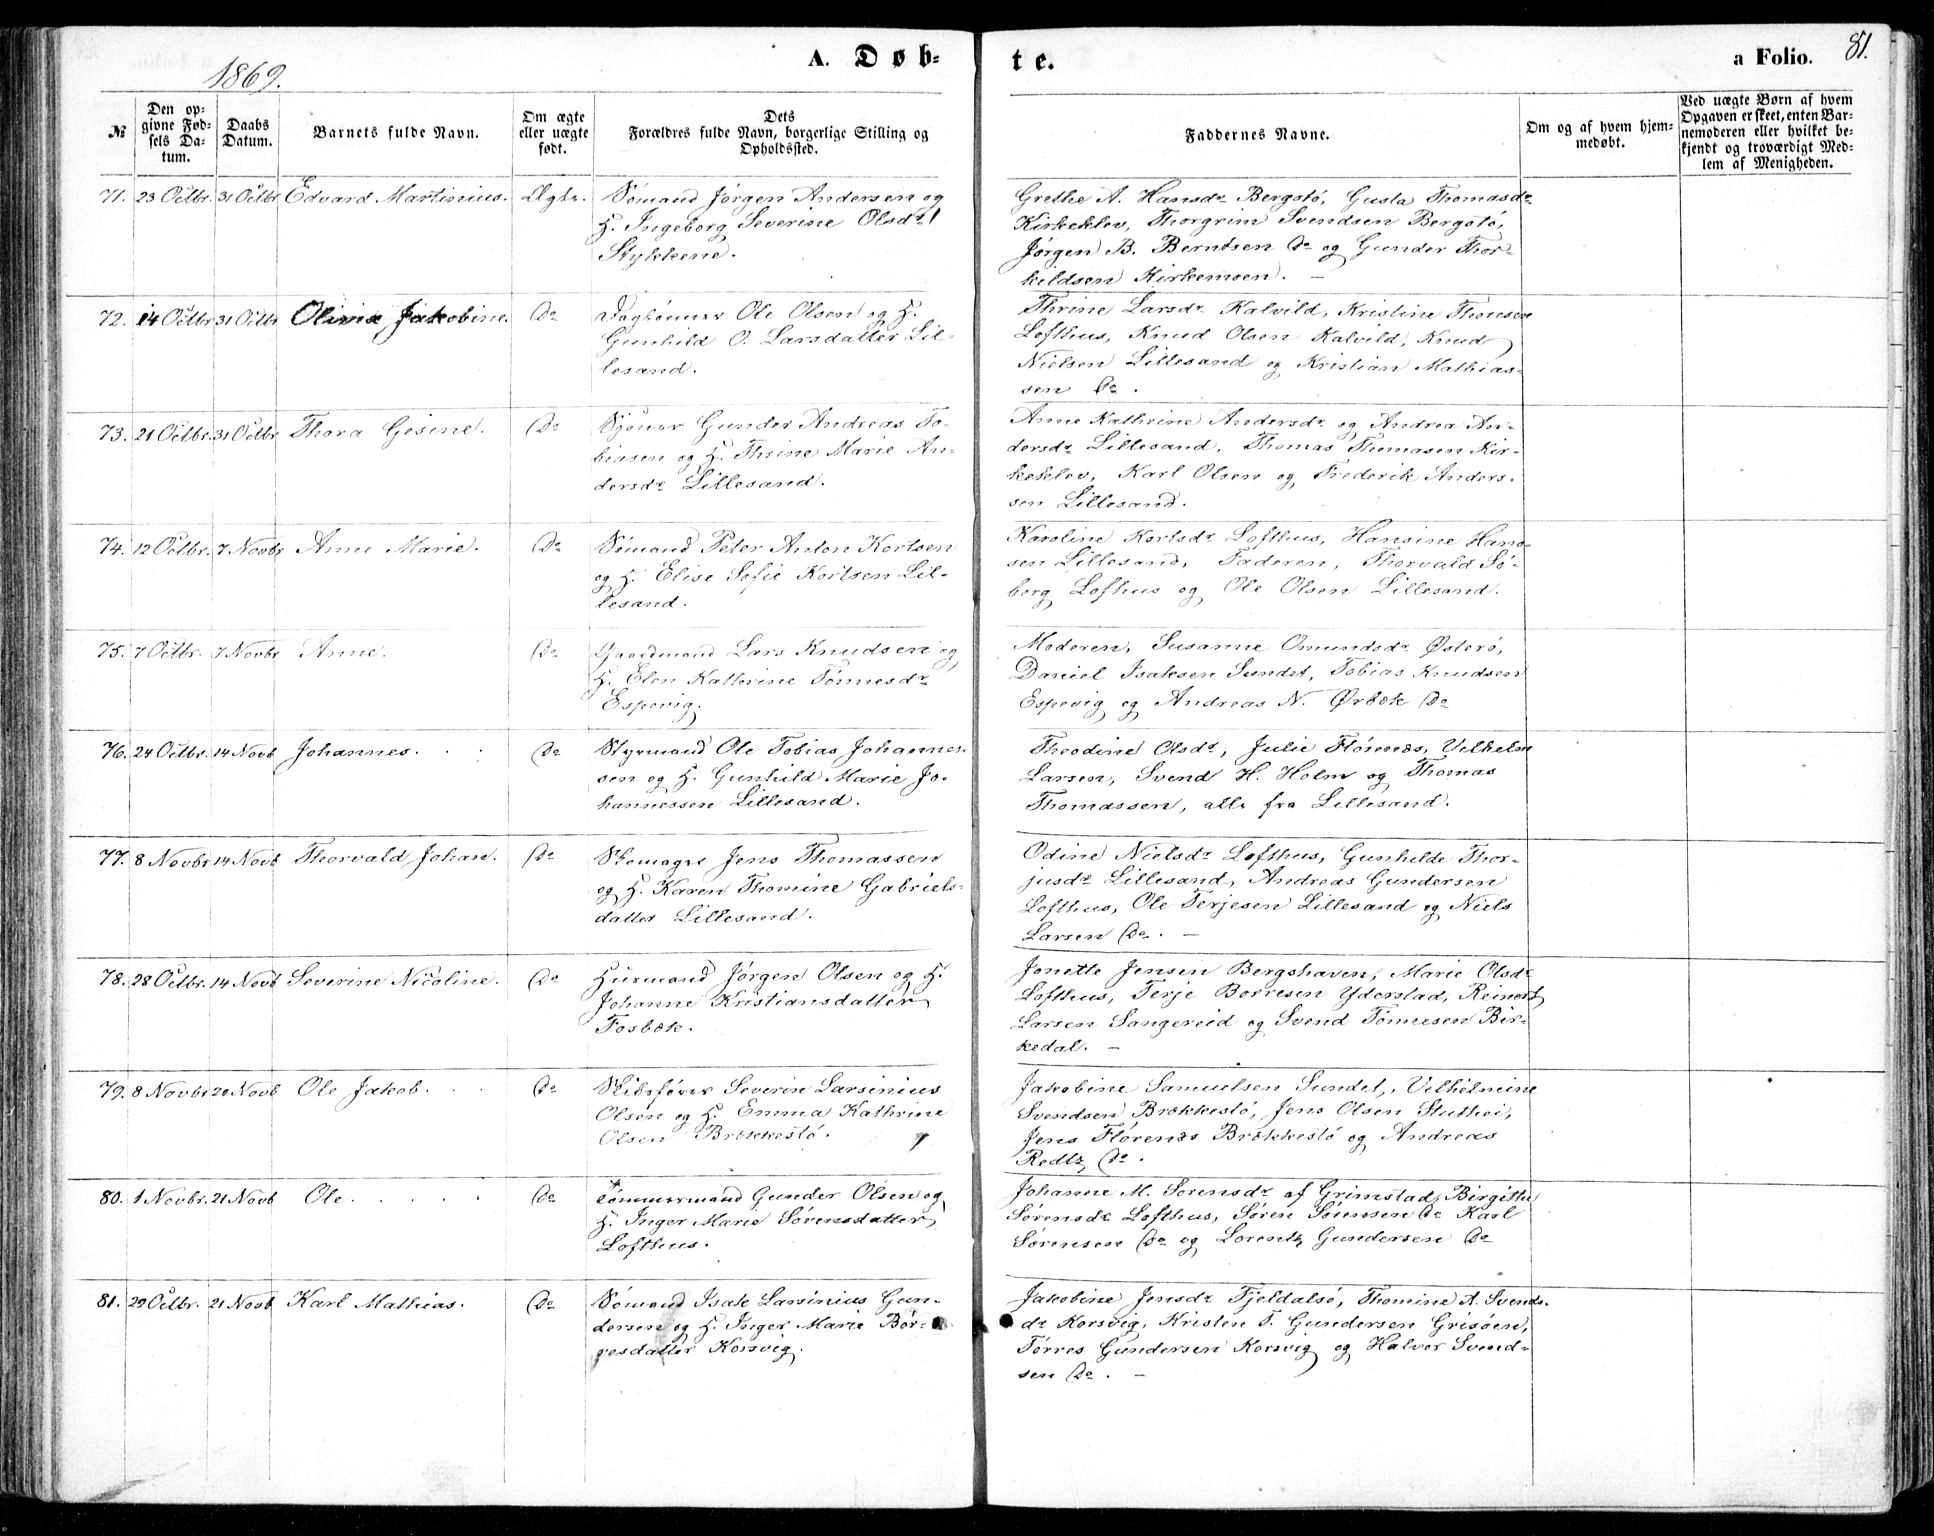 1869.
A. Døb-
te.
a Folio. 81.
№
Den op-
givne Fød-
sels Da-
tum.
Daabs
Datum.
Barnets fulde Navn.
Om ægte
eller uægte
født.
Dets
Forældres fulde Navn, borgerlige Stilling og
Opholdssted.
Faddernes Navne.
Om og af hvem hjem-
medøbt.
Ved uægte Børn af hvem
Opgaven er skeet, enten Bar-
nemoderen eller hvilket be-
kjendt og troværdigt Med-
lem af Menigheden.
71. 23 Octbr. 31 Octbr Edvard Martinius. Ægte. Sömand Jørgen Andersen og
H. Ingeborg Severine Olsdr
Stykkene.
Grethe A. Hansdr Bergstö, Gusta Thomasdr
Kirkeklev, Thorgrim Svendsen Bergstö,
Jørgen B. Berntsen Do og Gunder Thor-
kildsen Kirkemoen. —
72. 14 Octbr 31 Octbr Olivia Jakobine. Do Daglönner Ole Olsen og H.
Gunhild O. Larsdatter Lil-
lesand.
Thrine Larsdr Kalvild, Kristine Thomsen
Lofthus, Knud Olsen Kalvild, Knud
Nielsen Lillesand og Kristian Mathias-
sen Do.
73. 21 Octbr. 31 Octbr Thora Gesine. Do Sjöuer Gunder Andreas To-
biasen og H. Thrine Marie An-
dersdr Lillesand.
Anne Kathrine Andersdr og Andrea An-
dersdr Lillesand, Thomas Thomasen Kir-
keklev, Karl Olsen og Frederik Anders-
sen Lillesand.
74. 12 Octbr. 7 Novbr Anne Marie. Do Sömand Peter Anton Kortsen
og H. Elise Sofie Kortsen Lil-
lesand.
Karoline Kortsdr Lofthus, Hansine Han-
sen Lillesand, Faderen, Thorvald Sö-
berg Lofthus og Ole Olsen Lillesand.
75. 7 Octbr. 7 Novbr Anne. Do Gaardmand Lars Knudsen og
H. Elen Kathrine Tönnesdr
Espevig.
Moderen, Susanne Omundsdr Österö,
Daniel Isaksen Sundet, Tobias Knudsen
Espevig og Andreas N. Ørbæk Do
76. 24 Octbr. 14 Novb Johannes. Do Styrmand Ole Tobias Johannes-
sen og H. Gunhild Marie Jo-
hannessen Lillesand.
Theodine Olsdr, Julie Flörenæs, Vilhelm
Larsen, Svend H. Holm og Thomas
Thomassen, alle fra Lillesand.
77. 8 Novbr 14 Novb Thorvald Johan. Do Skomager Jens Thomassen
og H. Karen Thomine Gabriels-
datter Lillesand.
Odine Nielsdr Lofthus, Gunhilde Thor-
jusdr Lillesand, Andreas Gundersen
Lofthus, Ole Terjesen Lillesand og Niels
Larsen Do. —
78. 28 Octbr. 14 Novb Severine Nicoline. Do Husmand Jörgen Olsen og H.
Johanne Kristiansdatter
Fosbæk.
Jonette Jensen Bergshaven, Marie Olsdr
Lofthus, Terje Borresen Yderstad, Reinert
Larsen Sangereid og Svend Tönnesen Bir-
kedal. —
79. 8 Novbr 20 Novb Ole Jakob. Do Skibsförer Severin Larsinius
Olsen og H. Emma Kathrine
Olsen Brækkestö.
Jakobine Samuelsen Sundet, Vilhelmine
Svendsen Brækkestö, Jens Olsen Stuthei,
Jens Flörenæs Brækkestö og Andreas
Redtz Do.
80. 1 Novbr. 21 Novb Ole. Do Tömmermand Gunder Olsen og
H. Inger Marie Sörensdatter
Lofthus.
Johanne M. Sorensdr af Grimstad, Birgitte
Sörensdr Lofthus, Søren Sørensen Do Karl
Sörensen Do og Lorentz Gundersen Do
81. 29 Octbr. 21 Novb Karl Mathias. Do Sömand Isak Larsinius Gun-
dersen og H. Inger Marie Bör-
resdatter Korsvig.
Jakobine Jensdr Tjeldalsö, Thomine A. Svends-
dr Korsvig, Kristen T. Gundersen Grisöen,
Törres Gundersen Korsvig og Halvor Svend-
sen Do. —